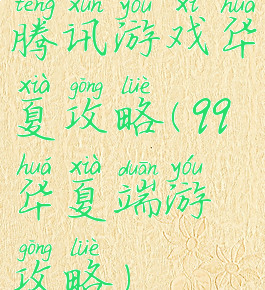 téng xùn yóu xì huá
腾讯游戏华
xià gōng lüè
夏攻略(99
huá xià duān yóu
华夏端游
gōng lüè
攻略)